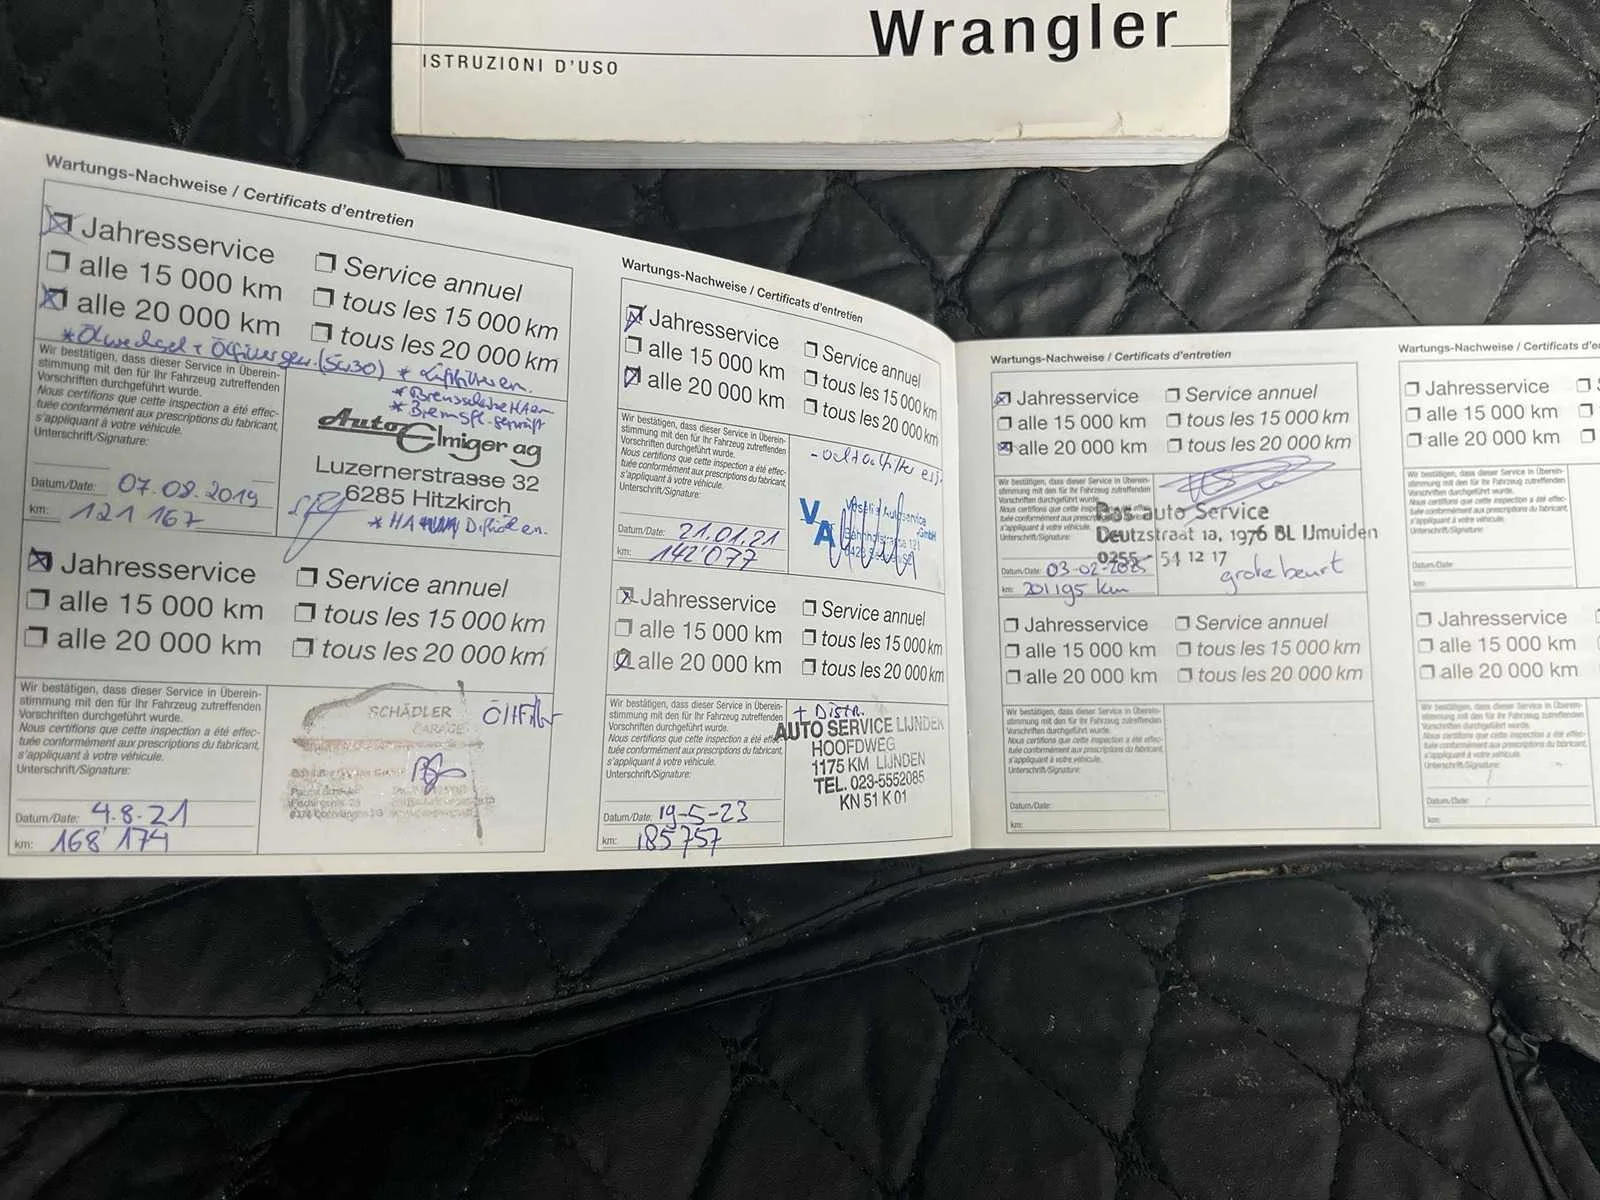 Wrangler
ISTRUZIONI D'USO
Wartungs-Nachweise / Certificats d'entretien
Jahresservice
alle 15 000 km
alle 20 000 km
Service annuel
tous les 15 000 km
tous les 20 000 km
(5W30)
Wir bestätigen, dass dieser Service in Überein-
stimmung mit den für Ihr Fahrzeug zutreffenden
Vorschriften durchgeführt wurde.
Nous certifions que cette inspection a été effec-
tuée conformément aux prescriptions du fabricant,
s'appliquant à votre véhicule.
Unterschrift/Signature:
Auto Elmiger ag
Luzernerstrasse 32
6285 Hitzkirch
Datum/Date: 07.08.2019
km: 121 167
Jahresservice
alle 15 000 km
alle 20 000 km
Service annuel
tous les 15 000 km
tous les 20 000 km
Wir bestätigen, dass dieser Service in Überein-
stimmung mit den für Ihr Fahrzeug zutreffenden
Vorschriften durchgeführt wurde.
Nous certifions que cette inspection a été effec-
tuée conformément aux prescriptions du fabricant,
s'appliquant à votre véhicule.
Unterschrift/Signature:
SCHÄDLER
GARAGE
Datum/Date: 4.8.21
km: 168'174
Wartungs-Nachweise / Certificats d'entretien
Jahresservice
alle 15 000 km
alle 20 000 km
Service annuel
tous les 15 000 km
tous les 20 000 km
Wir bestätigen, dass dieser Service in Überein-
stimmung mit den für Ihr Fahrzeug zutreffenden
Vorschriften durchgeführt wurde.
Nous certifions que cette inspection a été effec-
tuée conformément aux prescriptions du fabricant,
s'appliquant à votre véhicule.
Unterschrift/Signature:
VA
Autoservice
GmbH
Datum/Date: 21.01.21
km: 142'077
Jahresservice
alle 15 000 km
alle 20 000 km
Service annuel
tous les 15 000 km
tous les 20 000 km
Wir bestätigen, dass dieser Service in Überein-
stimmung mit den für Ihr Fahrzeug zutreffenden
Vorschriften durchgeführt wurde.
Nous certifions que cette inspection a été effec-
tuée conformément aux prescriptions du fabricant,
s'appliquant à votre véhicule.
Unterschrift/Signature:
+ Distr.
AUTO SERVICE LIJNDEN
HOOFDWEG
1175 KM LIJNDEN
TEL. 023-5552085
KN 51 K 01
Datum/Date: 19-5-23
km: 185757
Wartungs-Nachweise / Certificats d'entretien
Jahresservice
alle 15 000 km
alle 20 000 km
Service annuel
tous les 15 000 km
tous les 20 000 km
Wir bestätigen, dass dieser Service in Überein-
stimmung mit den für Ihr Fahrzeug zutreffenden
Vorschriften durchgeführt wurde.
Nous certifions que cette inspection a été
Unterschrift/Signature:
Bas auto Service
Deutzstraat 1a, 1976 BL IJmuiden
0255- 54 12 17
grote beurt
Datum/Date: 03-02-2025
km: 201195 km
Jahresservice
alle 15 000 km
alle 20 000 km
Service annuel
tous les 15 000 km
tous les 20 000 km
Wir bestätigen, dass dieser Service in Überein-
stimmung mit den für Ihr Fahrzeug zutreffenden
Vorschriften durchgeführt wurde.
Nous certifions que cette inspection a été effec-
tuée conformément aux prescriptions du fabricant,
s'appliquant à votre véhicule.
Unterschrift/Signature:
Datum/Date:
km:
Wartungs-Nachweise / Certificats
Jahresservice
alle 15 000 km
alle 20 000 km
Wir bestätigen, dass dieser Service in Überein-
stimmung mit den für Ihr Fahrzeug zutreffenden
Vorschriften durchgeführt wurde.
Nous certifions que cette inspection a été effec-
tuée conformément aux prescriptions du fabricant,
s'appliquant à votre véhicule.
Unterschrift/Signature:
Datum/Date:
km:
Jahresservice
alle 15 000 km
alle 20 000 km
Wir bestätigen, dass dieser Service in Überein-
stimmung mit den für Ihr Fahrzeug zutreffenden
Vorschriften durchgeführt wurde.
Nous certifions que cette inspection a été effec-
tuée conformément aux prescriptions du fabricant,
s'appliquant à votre véhicule.
Unterschrift/Signature:
Datum/Date:
km: